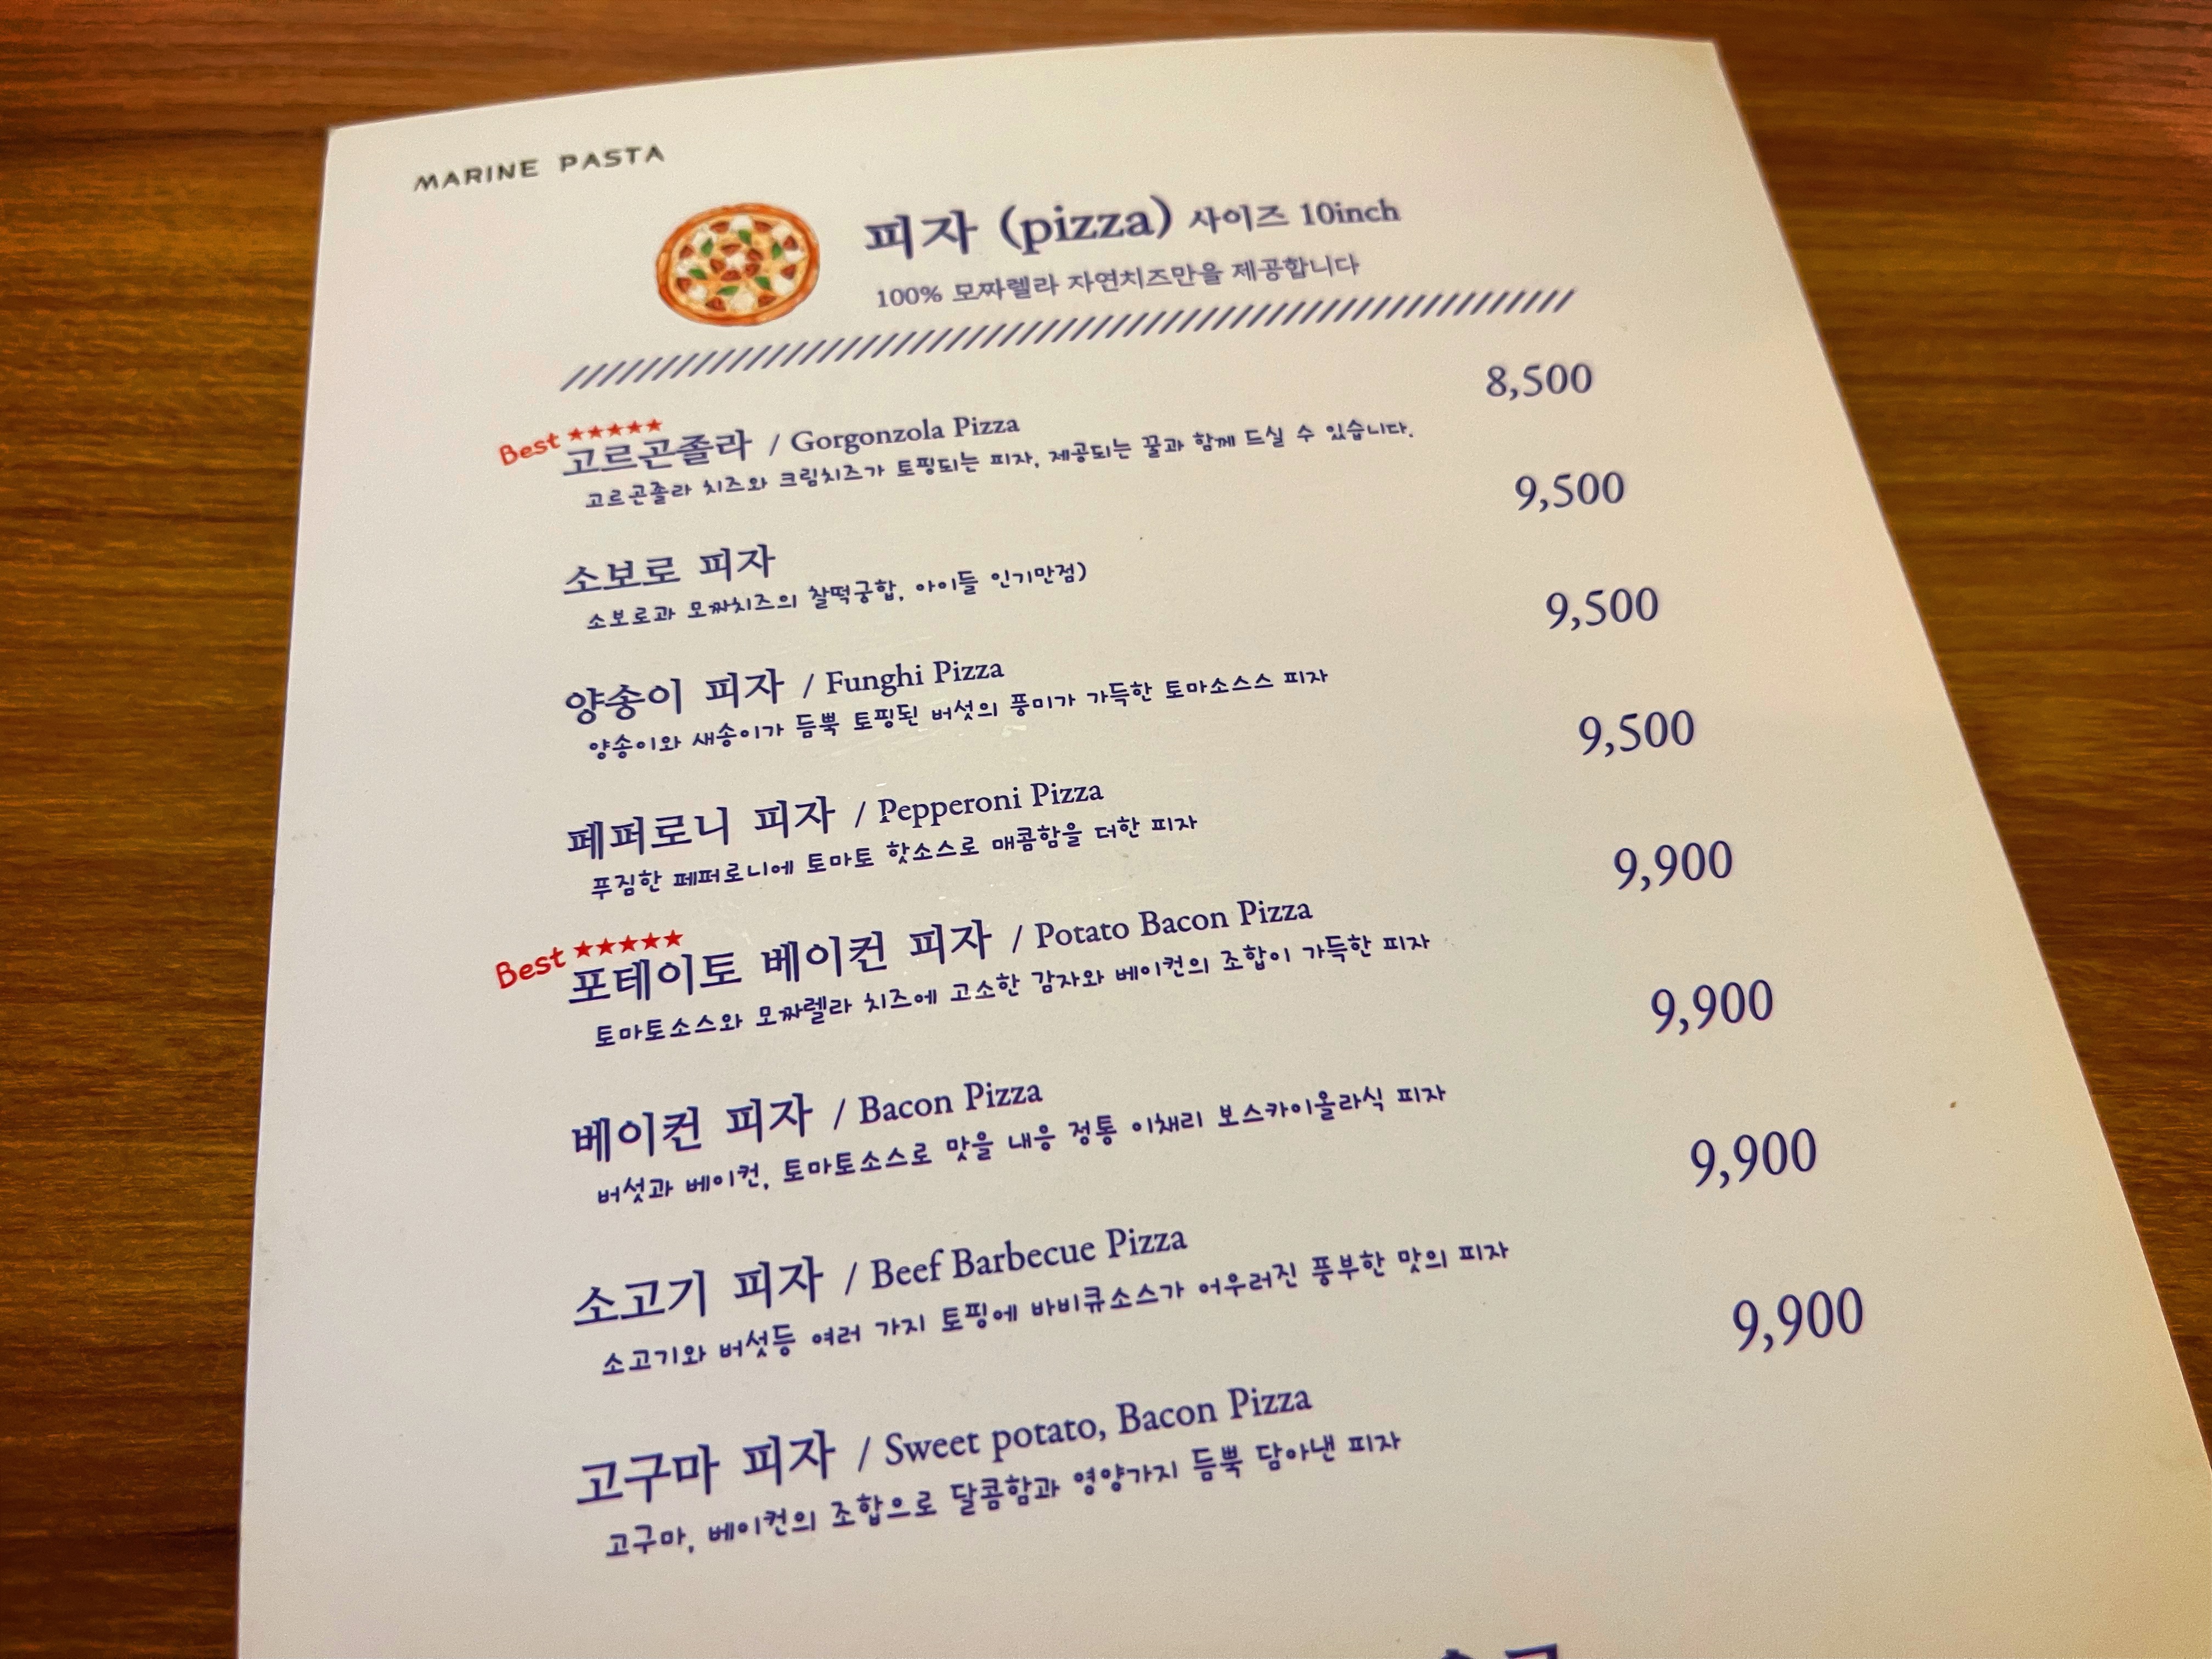 MARINE PASTA
피자 (pizza) 사이즈 10inch
100% 모짜렐라 자연치즈만을 제공합니다
Best ★★★★★
고르곤졸라 / Gorgonzola Pizza 8,500
고르곤졸라 치즈와 크림치즈가 토핑되는 피자, 제공되는 꿀과 함께 드실 수 있습니다.
소보로 피자 9,500
소보로과 모짜치즈의 찰떡궁합, 아이들 인기만점)
양송이 피자 / Funghi Pizza 9,500
양송이와 새송이가 듬뿍 토핑된 버섯의 풍미가 가득한 토마소스스 피자
페퍼로니 피자 / Pepperoni Pizza 9,500
푸짐한 페퍼로니에 토마토 핫소스로 매콤함을 더한 피자
Best ★★★★★
포테이토 베이컨 피자 / Potato Bacon Pizza 9,900
토마토소스와 모짜렐라 치즈에 고소한 감자와 베이컨의 조합이 가득한 피자
베이컨 피자 / Bacon Pizza 9,900
버섯과 베이컨, 토마토소스로 맛을 내응 정통 이채리 보스카이올라식 피자
소고기 피자 / Beef Barbecue Pizza 9,900
소고기와 버섯등 여러 가지 토핑에 바비큐소스가 어우러진 풍부한 맛의 피자
고구마 피자 / Sweet potato, Bacon Pizza 9,900
고구마, 베이컨의 조합으로 달콤함과 영양가지 듬뿍 담아낸 피자